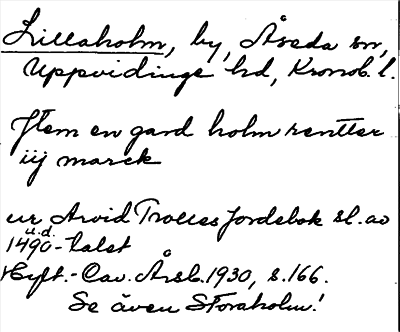 Lillaholm, by, Åseda sn,
Uppvidinge hd, Kronob. l.
Jtem en gard holm rentter
iij marck
ur Arvid Trolles Jordebok sl. av
u.d.
1490-talet
Hylt.-Cav. Årsb. 1930, s. 166.
Se även Storaholm!